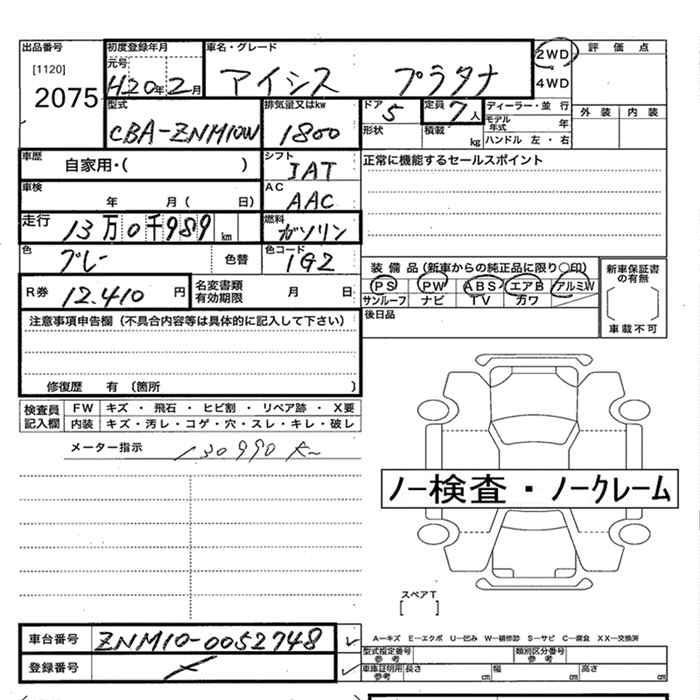 出品番号 初度登録年月 車名・グレード 2WD 評価点
[1120] 元号 H20年2月 アイシス プラタナ 4WD
2075 型式 排気量又はkw ドア 5 定員 7人 ディーラー・並行 外装 内装
CBA-ZNM10W 1800 形状 積載 kg モデル年式 年
ハンドル 左・右
車歴 自家用・( ) シフト IAT 正常に機能するセールスポイント
車検 年 月( 日) AC AAC
走行 13万0千989km 燃料 ガソリン
色 グレー 色替 色コード 1G2
装備品(新車からの純正品に限り○印) 新車保証書の有無
R券 12.410円 名変書類有効期限 月 日 PS PW ABS エアB アルミW
サンルーフ ナビ TV カワ 車載不可
注意事項申告欄(不具合内容等は具体的に記入して下さい) 後日品
修復歴 有(箇所 )
検査員記入欄 FW キズ・飛石・ヒビ割・リペア跡・X要
内装 キズ・汚レ・コゲ・穴・スレ・キレ・破レ
メーター指示 130990
ノー検査・ノークレーム
スペアT
[ ]
車台番号 ZNM10-0052748 A－キズ E－エクボ U－凹み W－補修跡 S－サビ C－腐食 XX－交換済
登録番号 型式指定番号 参考 類別区分番号 参考
車庫証明用参考 長さ cm 幅 cm 高さ cm